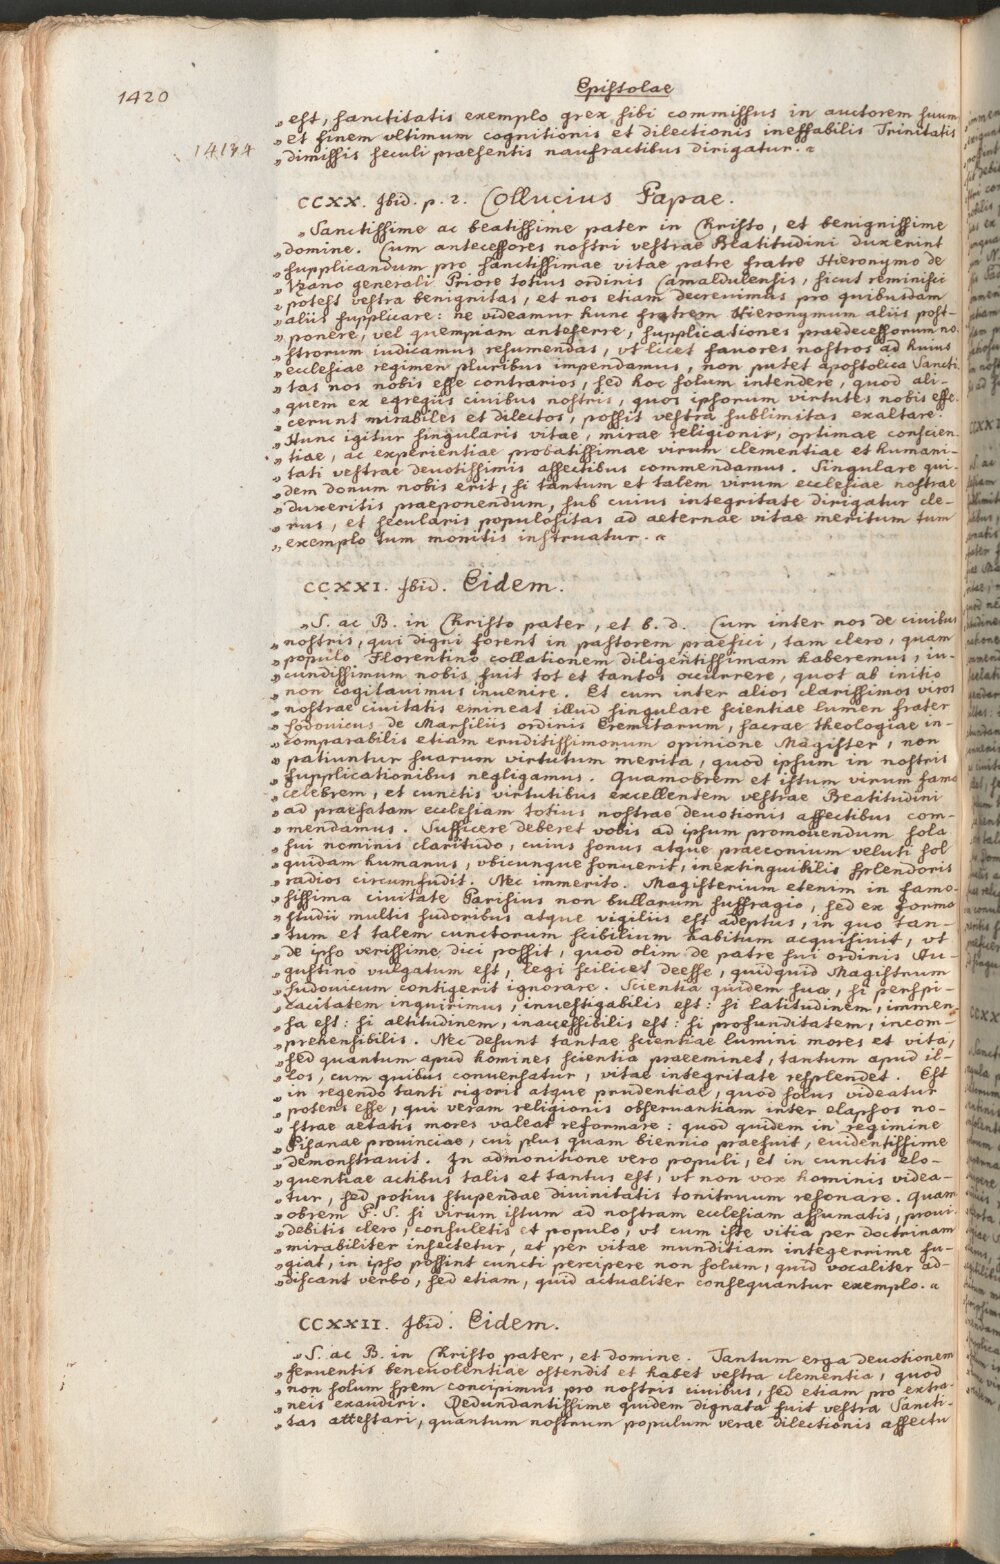 1420
Epistolae
„est, sanctitatis exemplo grex sibi commissus in auctorem suum
„et finem vltimum cognitionis et dilectionis ineffabilis Trinitatis
14134
„dimissis seculi praesentis naufractibus dirigatur. “
CCXX. Ibid. p. 2. Collucius Papae.
„Sanctissime ac beatissime pater in Christo, et benignissime
„domine. Cum antecessores nostri vestrae Beatitudini duxerint
„supplicandum pro sanctissimae vitae patre fratre Hieronymo de
„Vzano generali Priore totius ordinis Camaldulensis, sicut reminisci
„potest vestra benignitas, et nos etiam decreuimus pro quibusdam
„aliis supplicare: ne videamur hunc fratrem Hieronymum aliis post-
„ponere, vel quempiam anteferre, supplicationes praedecessorum no
„strorum iudicamus resumendas, vt licet fauores nostros ad huius
„ecclesiae regimen pluribus impendamus, non putet apostolica Sancti
„tas nos nobis esse contrarios, sed hoc solum intendere, quod ali-
„quem ex egregiis ciuibus nostris, quos ipsorum virtutes nobis effe-
„cerunt mirabiles et dilectos, possit vestra sublimitas exaltare.
„Hunc igitur singularis vitae, mirae religionis, optimae conscien-
„tiae, ac experientiae probatissimae virum clementiae et humani-
„tati vestrae deuotissimis affectibus commendamus. Singulare qui-
„dem donum nobis erit, si tantum et talem virum ecclesiae nostrae
„duxeritis praeponendum, sub cuius integritate dirigatur cle-
„rus, et secularis populositas ad aeternae vitae meritum tum
„exemplo tum monitis instruatur. “
CCXXI. Ibid. Eidem.
„S. ac B. in Christo pater, et b. d. Cum inter nos de ciuibus
„nostris, qui digni forent in pastorem praefici, tam clero, quam
„populo Florentino collationem diligentissimam haberemus, iu-
„cundissimum nobis fuit tot et tantos occurrere, quot ab initio
„non cogitauimus inuenire. Et cum inter alios clarissimos viros
„nostrae ciuitatis emineat illud singulare scientiae lumen frater
„Lodouicus de Marsiliis ordinis Eremitarum, sacrae theologiae in-
„comparabilis etiam eruditissimorum opinione Magister, non
„patiuntur suarum virtutum merita, quod ipsum in nostris
„supplicationibus negligamus. Quamobrem et istum virum fama
„celebrem, et cunctis virtutibus excellentem vestrae Beatitudini
„ad praefatam ecclesiam totius nostrae deuotionis affectibus com-
„mendamus. Sufficere deberet vobis ad ipsum promouendum sola
„sui nominis claritudo, cuius sonus atque praeconium veluti sol
„quidam humanus, vbicunque sonuerit, inextinguibilis splendoris
„radios circumfudit. Nec immerito. Magisterium etenim in famo-
„sissima ciuitate Parisius non bullarum suffragio, sed ex forma
„studii multis sudoribus atque vigiliis est adeptus, in quo tan-
„tum et talem cunctorum scibilium habitum acquisiuit, vt
„de ipso verissime dici possit, quod olim de patre sui ordinis Au-
„gustino vulgatum est, legi scilicet deesse, quidquid Magistrum
„Ludouicum contigerit ignorare. Scientia quidem sua, si perspi-
„cacitatem inquirimus, inuestigabilis est: si latitudinem, immen-
„sa est: si altitudinem, inaccessibilis est: si profunditatem, incom-
„prehensibilis. Nec desunt tantae scientiae lumini mores et vita,
„sed quantum apud homines scientia praeeminet, tantum apud il-
„los, cum quibus conuersatur, vitae integritate resplendet. Est
„in regendo tanti rigoris atque prudentiae, quod solus videatur
„potens esse, qui veram religionis obseruantiam inter elapsos no-
„strae aetatis mores valeat reformare: quod quidem in regimine
„Pisanae prouinciae, cui plus quam biennio praefuit, euidentissime
„demonstrauit. In admonitione vero populi, et in cunctis elo-
„quentiae actibus talis et tantus est, vt non vox hominis videa-
„tur, sed potius stupendae diuinitatis tonitruum resonare. Quam
„obrem P. S. si virum istum ad nostram ecclesiam assumatis, proui-
„debitis clero, consuletis et populo, vt cum iste vitia per doctrinam
„mirabiliter insectetur, et per vitae munditiam integerrime fu-
„giat, in ipso possint cuncti percipere non solum, quid vocaliter ad-
„discant verbo, sed etiam, quid actualiter consequantur exemplo. “
CCXXII. Ibid. Eidem.
„S. ac B. in Christo pater, et domine. Tantum erga deuotionem
„feruentis beneuolentiae ostendit et habet vestra clementia, quod
„non solum spem concipimus pro nostris ciuibus, sed etiam pro extra-
„neis exaudiri. Redundantissime quidem dignata fuit vestra Sancti-
„tas attestari, quantum nostrum populum verae dilectionis affectu